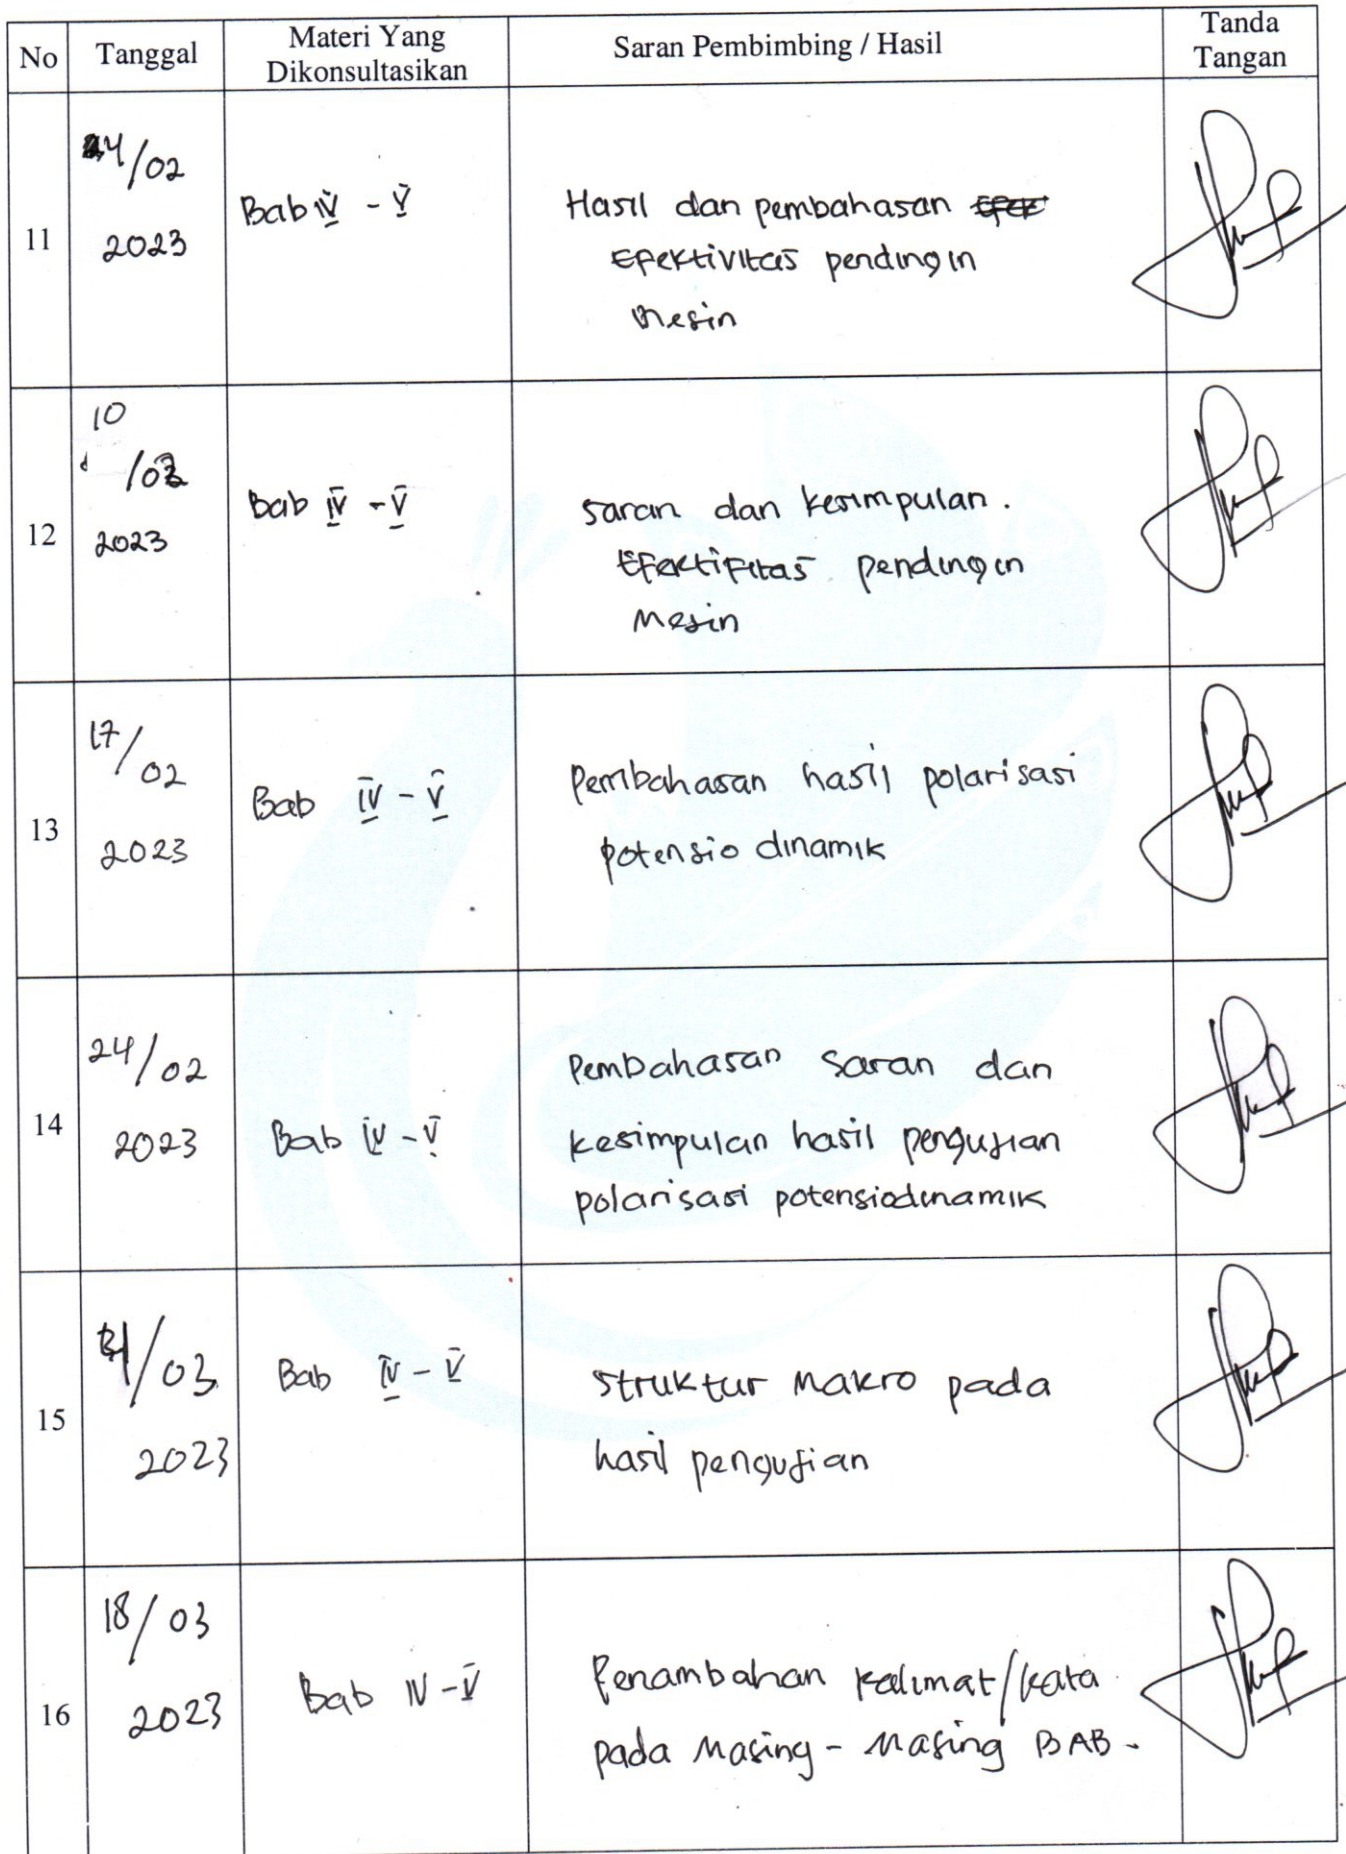 No Tanggal Materi Yang Dikonsultasikan Saran Pembimbing / Hasil Tanda Tangan
11
/02
2023
Bab IV - V
Hasil dan pembahasan
Efektivitas pendingin
Mesin
12
10
/03
2023
Bab IV - V
saran dan kesimpulan.
Efektifitas pendingin
Mesin
13
17/02
2023
Bab IV - V
Pembahasan hasil polarisasi
potensio dinamik
14
24/02
2023
Bab IV - V
Pembahasan saran dan
kesimpulan hasil pengujian
polarisasi potensiodinamik
15
/03
2023
Bab IV - V
struktur Makro pada
hasil pengujian
16
18/03
2023
Bab IV - V
Penambahan kalimat/kata
pada Masing - Masing BAB.